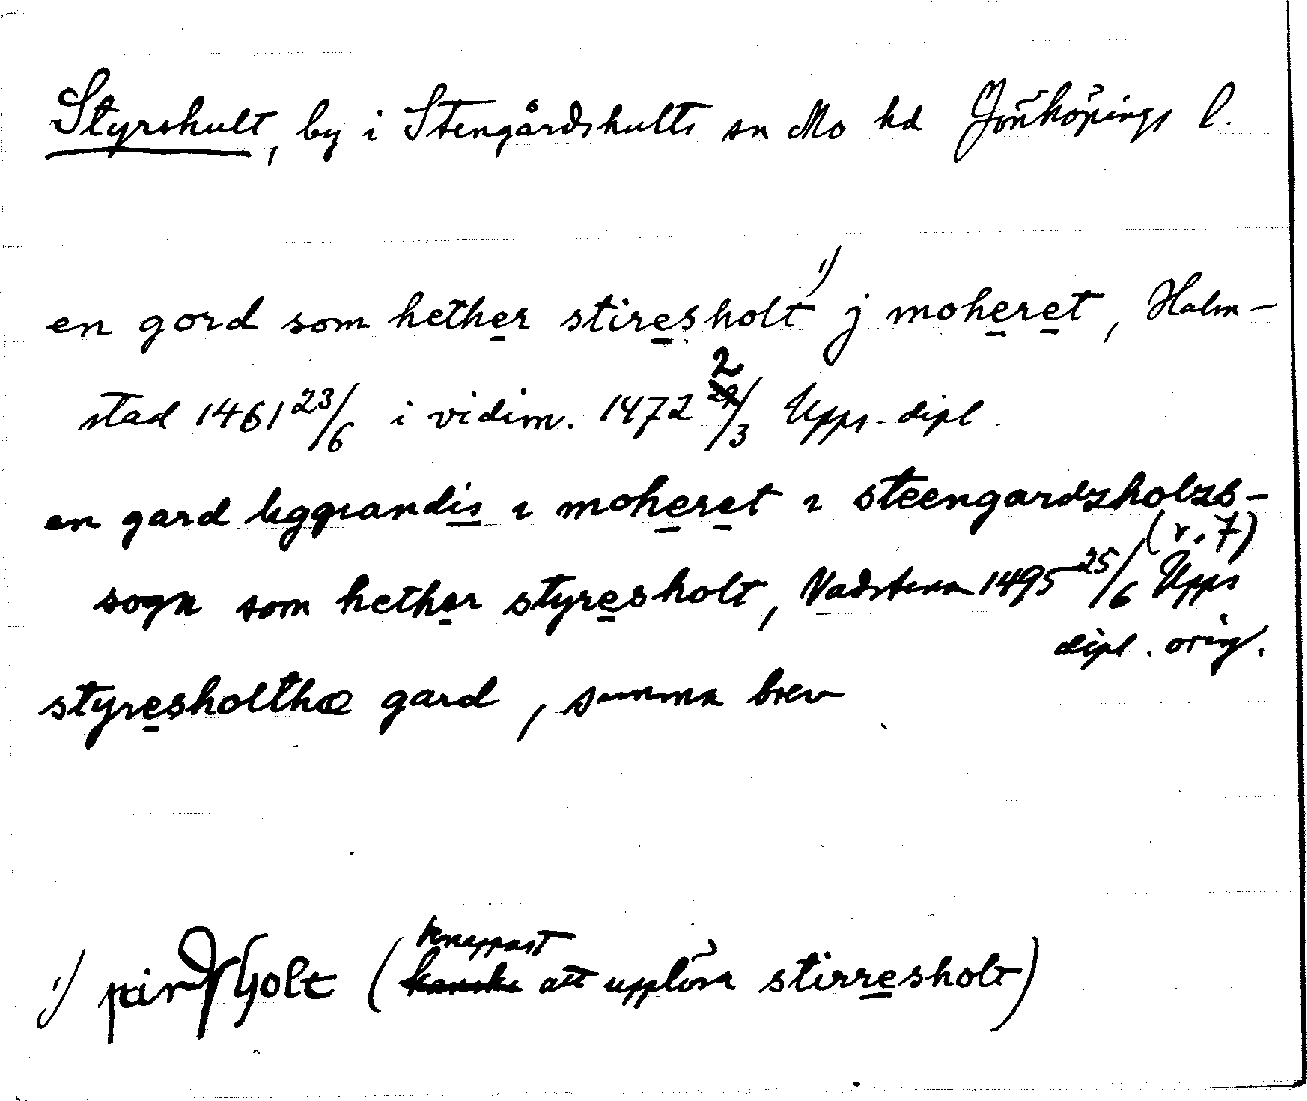 Styrshult, by i Stengårdshults sn Mo hd Jönköpings l.
en gord som hether stiresholt 1) j moheret, Halm-
stad 1461 23/6 i vidim. 1472 2/3 Upps. dipl.
en gard liggiandis i moheret i steengardzholzs-
(r. 7)
sogn som hether styresholt, Vadstena 1495 25/6 Upps
dipl. orig.
styresholthæ gard, samma brev
1) (knappast
att upplösa stirresholt)